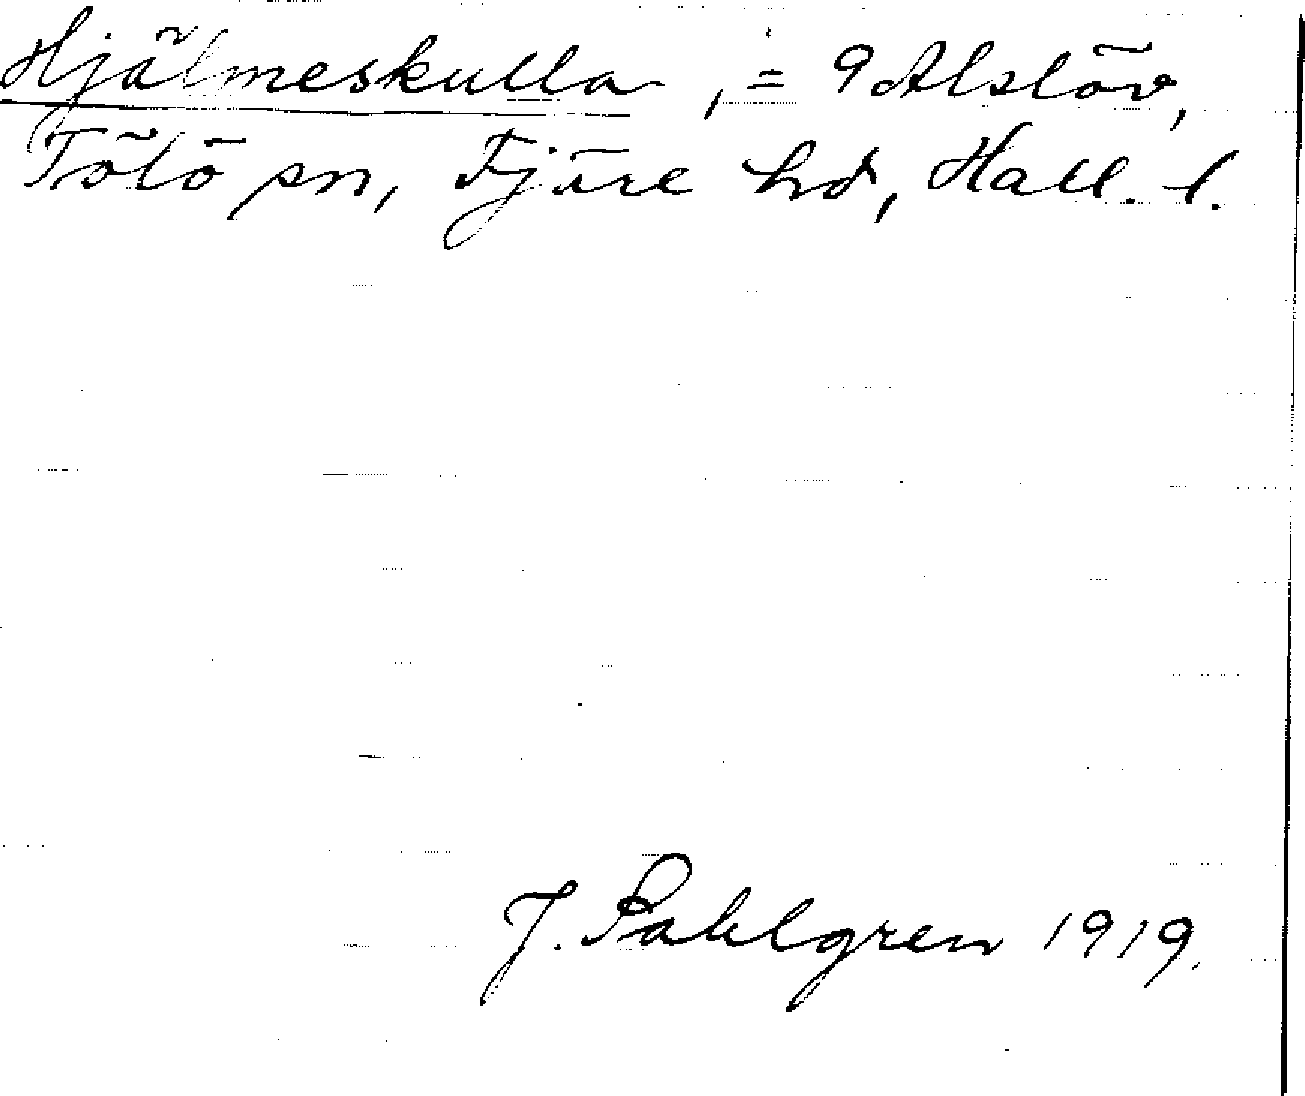 Hjälmeskulla, = 9 Alslöv,
Tölö sn, Fjäre hd, Hall. l.
J. Sahlgren 1919.